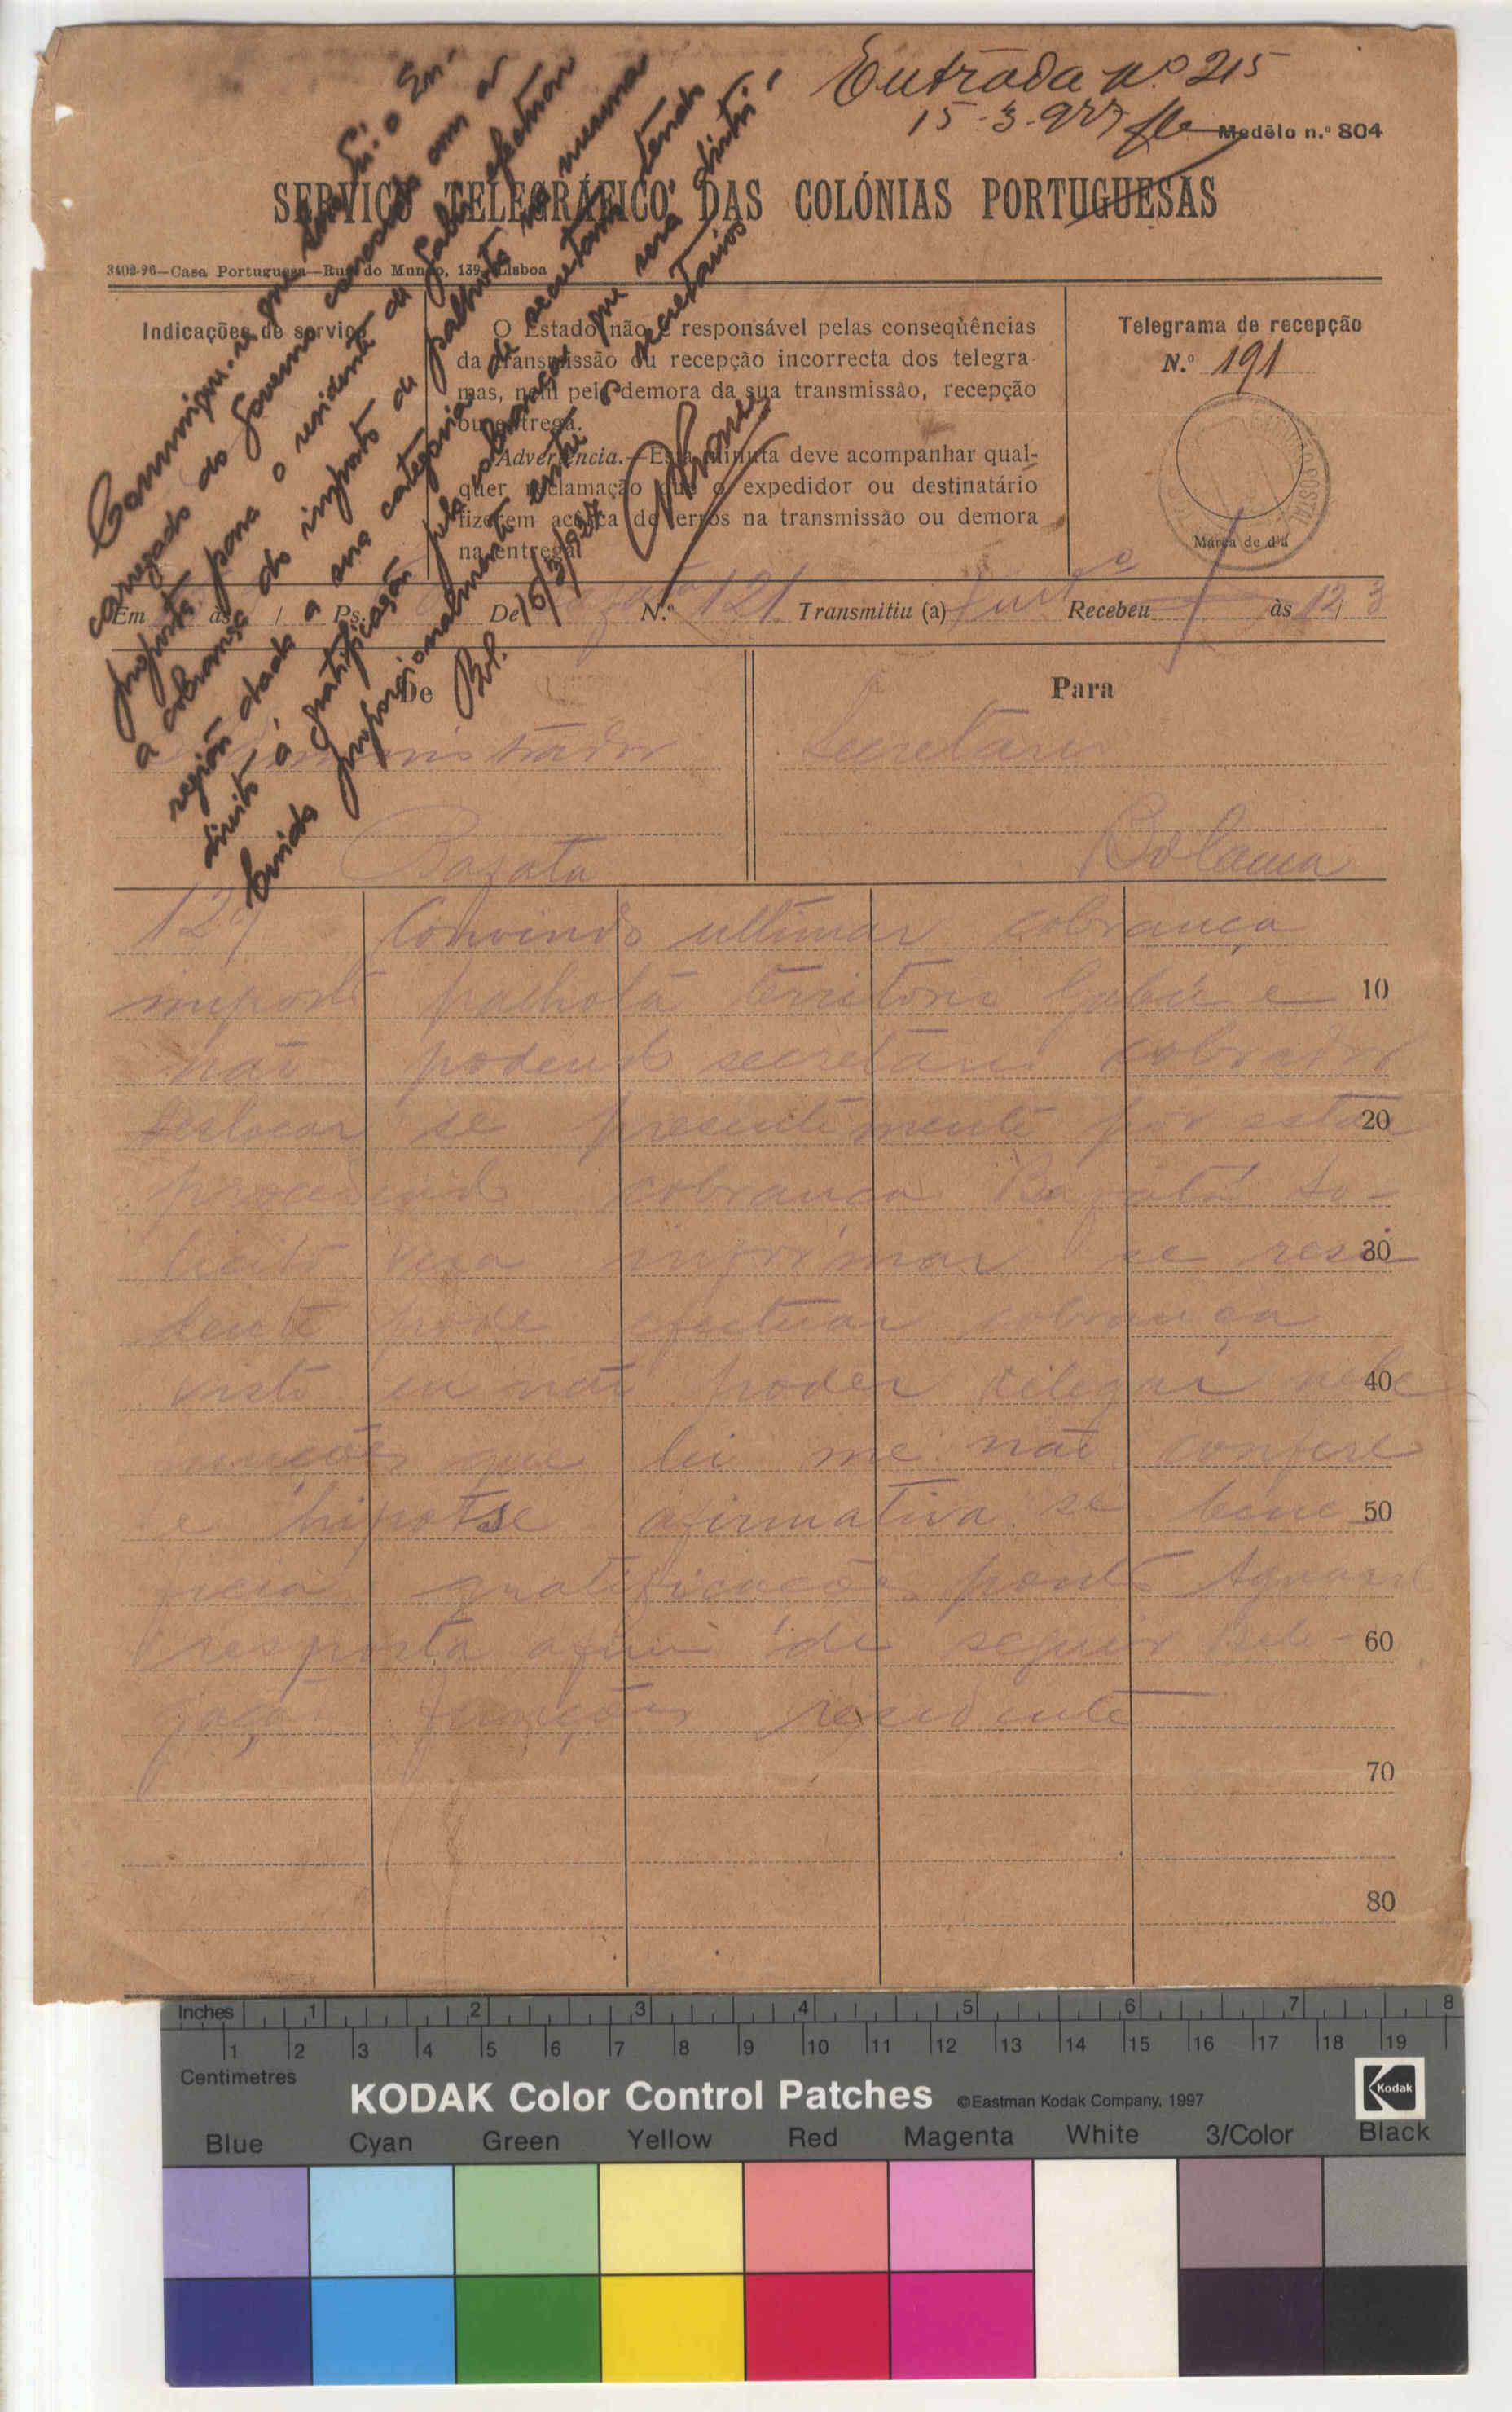 Entrada nº 215
15-3-927
Modêlo n.º 804
SERVIÇO TELEGRÁFICO DAS COLÓNIAS PORTUGUESAS
3402-96—Casa Portuguesa—Rua do Mundo, 139—Lisboa
Comunique-se que Sua Ex.ª o En-
carregado do Governo concorda com a
proposta para o residente de Gabú efectuar
a cobrança do imposto de palhota na mesma
região dada a sua categoria de secretario tendo
direito á gratificação pela cobrança que será distri-
buida proporcionalmente entre os secretarios
Bol. 15/3/927
Indicações de serviço
O Estado não é responsável pelas conseqüências
da transmissão ou recepção incorrecta dos telegra-
mas, nem pela demora da sua transmissão, recepção
ou entrega.
Advertência.—Esta minuta deve acompanhar qual-
quer reclamação que o expedidor ou destinatário
fizerem acêrca de erros na transmissão ou demora
na entrega.
Telegrama de recepção
N.º 191
Marca de dia
Em às / Ps. De N.º 121 Transmitiu (a) Recebeu às 12/3
De
Para
Administrador
Secretario
Bafata
Bolama
129 Convindo ultimar cobrança
imposto palhota territorio Gabú e 10
não podendo secretario cobrador
deslocar se presentemente por estar 20
procedendo cobrança Bafatá so-
licito Vexa informar se resi 30
dente pode efectuar cobrança
visto eu não poder delegar nele 40
funções que lei me não confere
e hipotse afirmativa se bene 50
ficia gratificações ponto Aguardo
resposta afim de seguir dele- 60
gação funções residente
70
80
Inches 1 2 3 4 5 6 7 8
1 2 3 4 5 6 7 8 9 10 11 12 13 14 15 16 17 18 19
Centimetres
KODAK Color Control Patches ©Eastman Kodak Company, 1997
Kodak
Blue Cyan Green Yellow Red Magenta White 3/Color Black